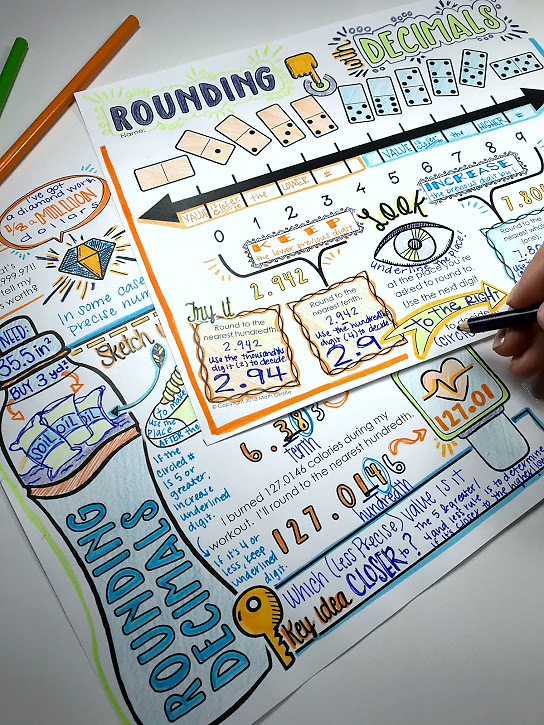 ROUNDING
with DECIMALS
Name:
VALUE closer to the LOWER #
VALUE closer to the HIGHER #
0 1 2 3 4 5 6 7 8 9
KEEP
the lower previous digit
INCREASE
the previous digit by
LOOK
2.942
7.80
Try it
Round to the
nearest hundredth.
2.942
Use the thousandths
digit (2) to decide
2.94
Round to the
nearest tenth.
2.942
Use the hundredths
digit (4) to decide
2.9
underline the place
at the place you're
asked to round to.
Use the next digit
TO THE RIGHT
to decide
(circle
Round to the
nearest whole
(one).
© Copyright 2018 Math Giraffe
I've got
a diamond worth
1/8 a MILLION
dollars
tell my
is worth?
In some case
precise num
Sketch i
NEED:
35.5 in²
But 3 yds²
OIL
OIL
OIL
ROUNDING
DECIMALS
use the
place
AFTER the
If the
circled #
is 5 or
greater,
increase
underlined
digit.
If it's 4 or
less, keep
underlined
digit.
6.38
tenth
I burned 127.0146 calories during my
workout. I'll round to the nearest hundredth.
127.0146
hundredth
127.01
Key idea
Which (Less Precise) value is it
CLOSER to?
The 5 & greater/
4 and less rule is to determine